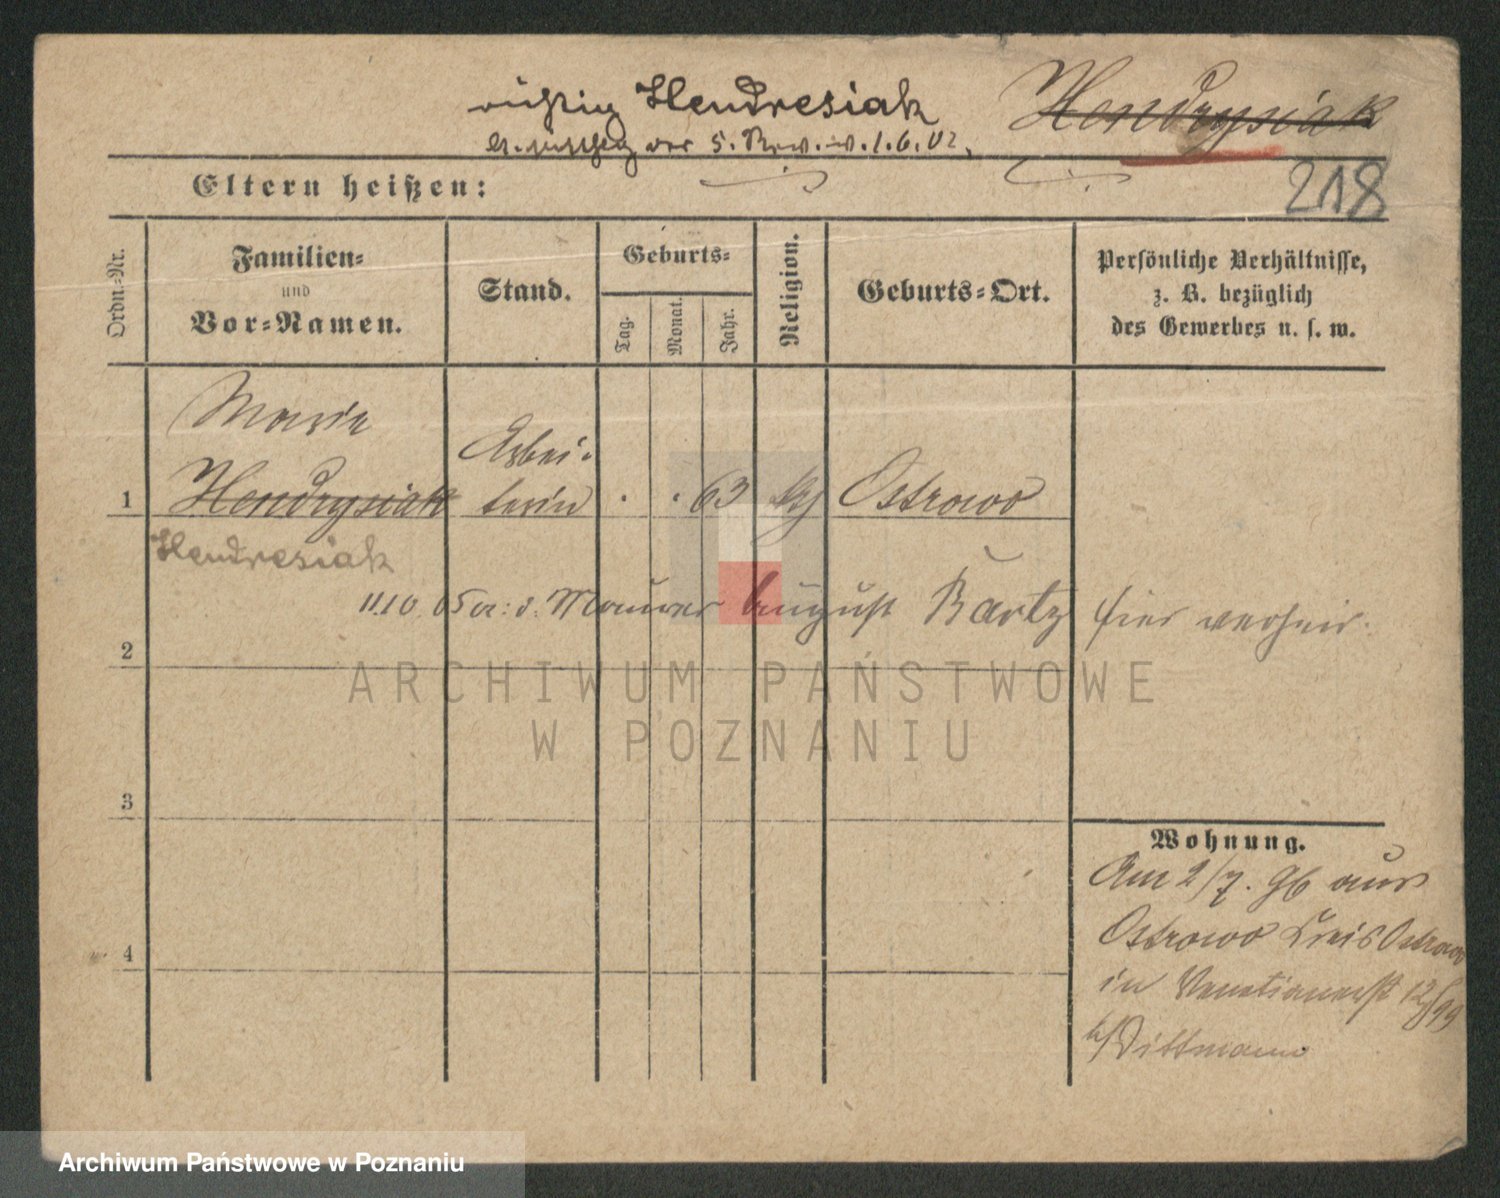 richtig Hendresiak Hendrysiak
der 5. Rev. v. 1.6.02.
Eltern heißen:
218
Ordn.-Nr.
Familien-
und
Vor-Namen.
Stand.
Geburts-
Tag.
Monat.
Jahr.
Religion.
Geburts-Ort.
Persönliche Verhältnisse,
z. B. bezüglich
des Gewerbes u. s. w.
Marie
Arbei-
1 Hendrysiak terin . . 63 Ostrowo
Hendresiak
11.10.05 a: d. Maurer August Bartz hier verheir.
2
ARCHIWUM PAŃSTWOWE
W POZNANIU
3
Wohnung.
Am 2/7. 96 aus
Ostrowo Kreis Ostrowo
4
in Venetianerst 12/99
b/Dittmann
Archiwum Państwowe w Poznaniu